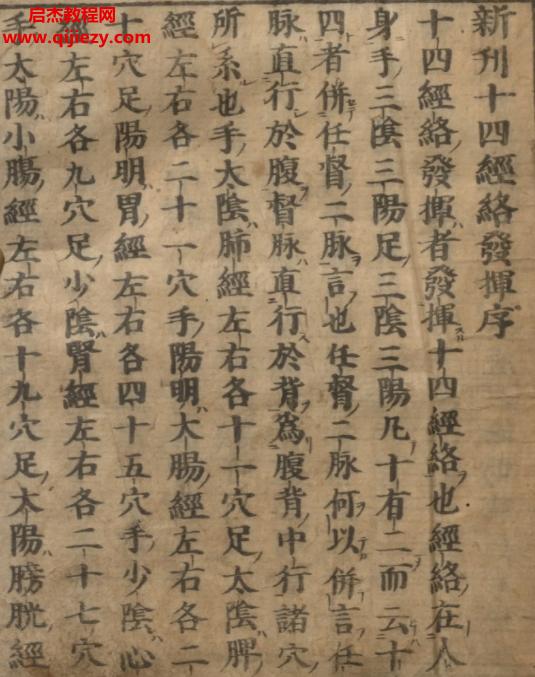 启杰教程网
www.qijiezy.com
新刊十四經絡發揮序
十四經絡發揮者發揮十四經絡也經絡在人
身手三陰三陽足三陰三陽凡十有二而云十
四者併任督二脉言也任督二脉何以併言任
脉直行於腹督脉直行於背為腹背中行諸穴
所系也手太陰肺經左右各十一穴足太陰脾
經左右各二十一穴手陽明大腸經左右各二
十穴足陽明胃經左右各四十五穴手少陰心
經左右各九穴足少陰腎經左右各二十七穴
手太陽小腸經左右各十九穴足太陽膀胱經